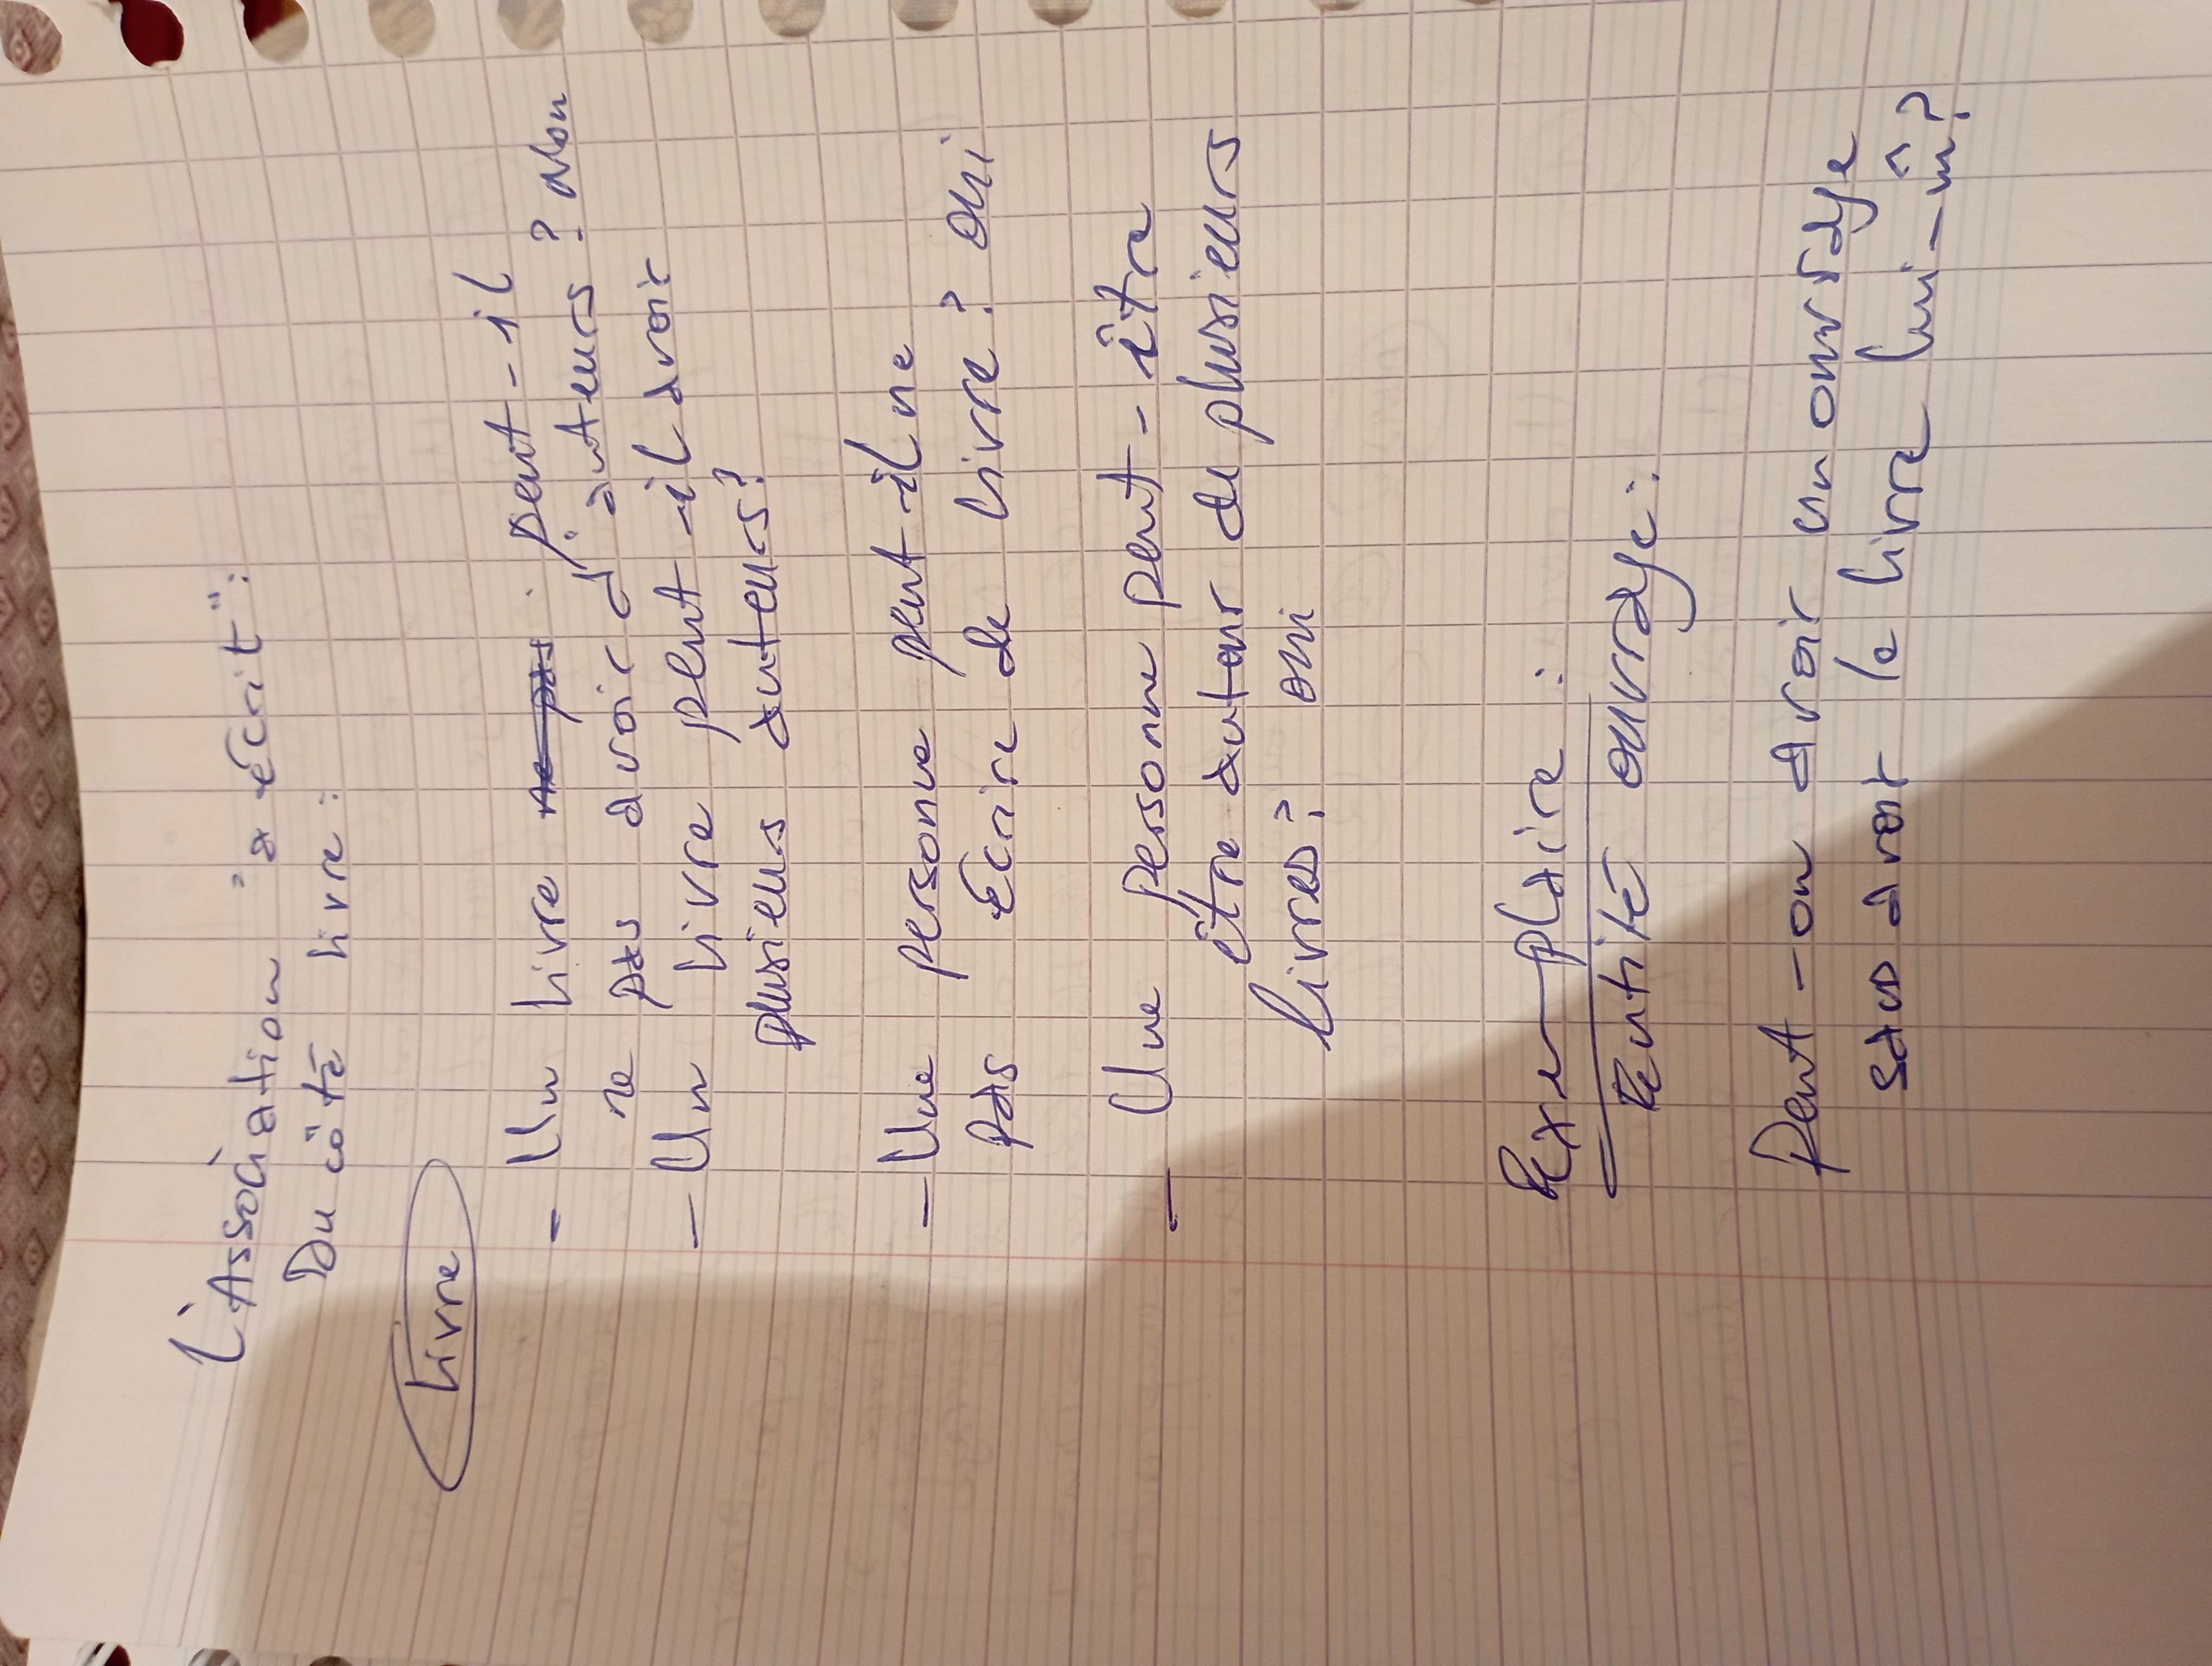 L'Association "a écrit":
Du côté livre:
Livre
- Un livre ne pas peut-il
ne pas avoir d'auteurs? Non
- Un livre peut-il avoir
plusieurs auteurs?
- Une personne peut-il ne
pas écrire de livre? oui
- Une personne peut-être
être auteur de plusieurs
livres? oui
Exemplaire:
Entité ouvrage:
Peut-on avoir un ouvrage
sans avoir le livre lui-m̂?